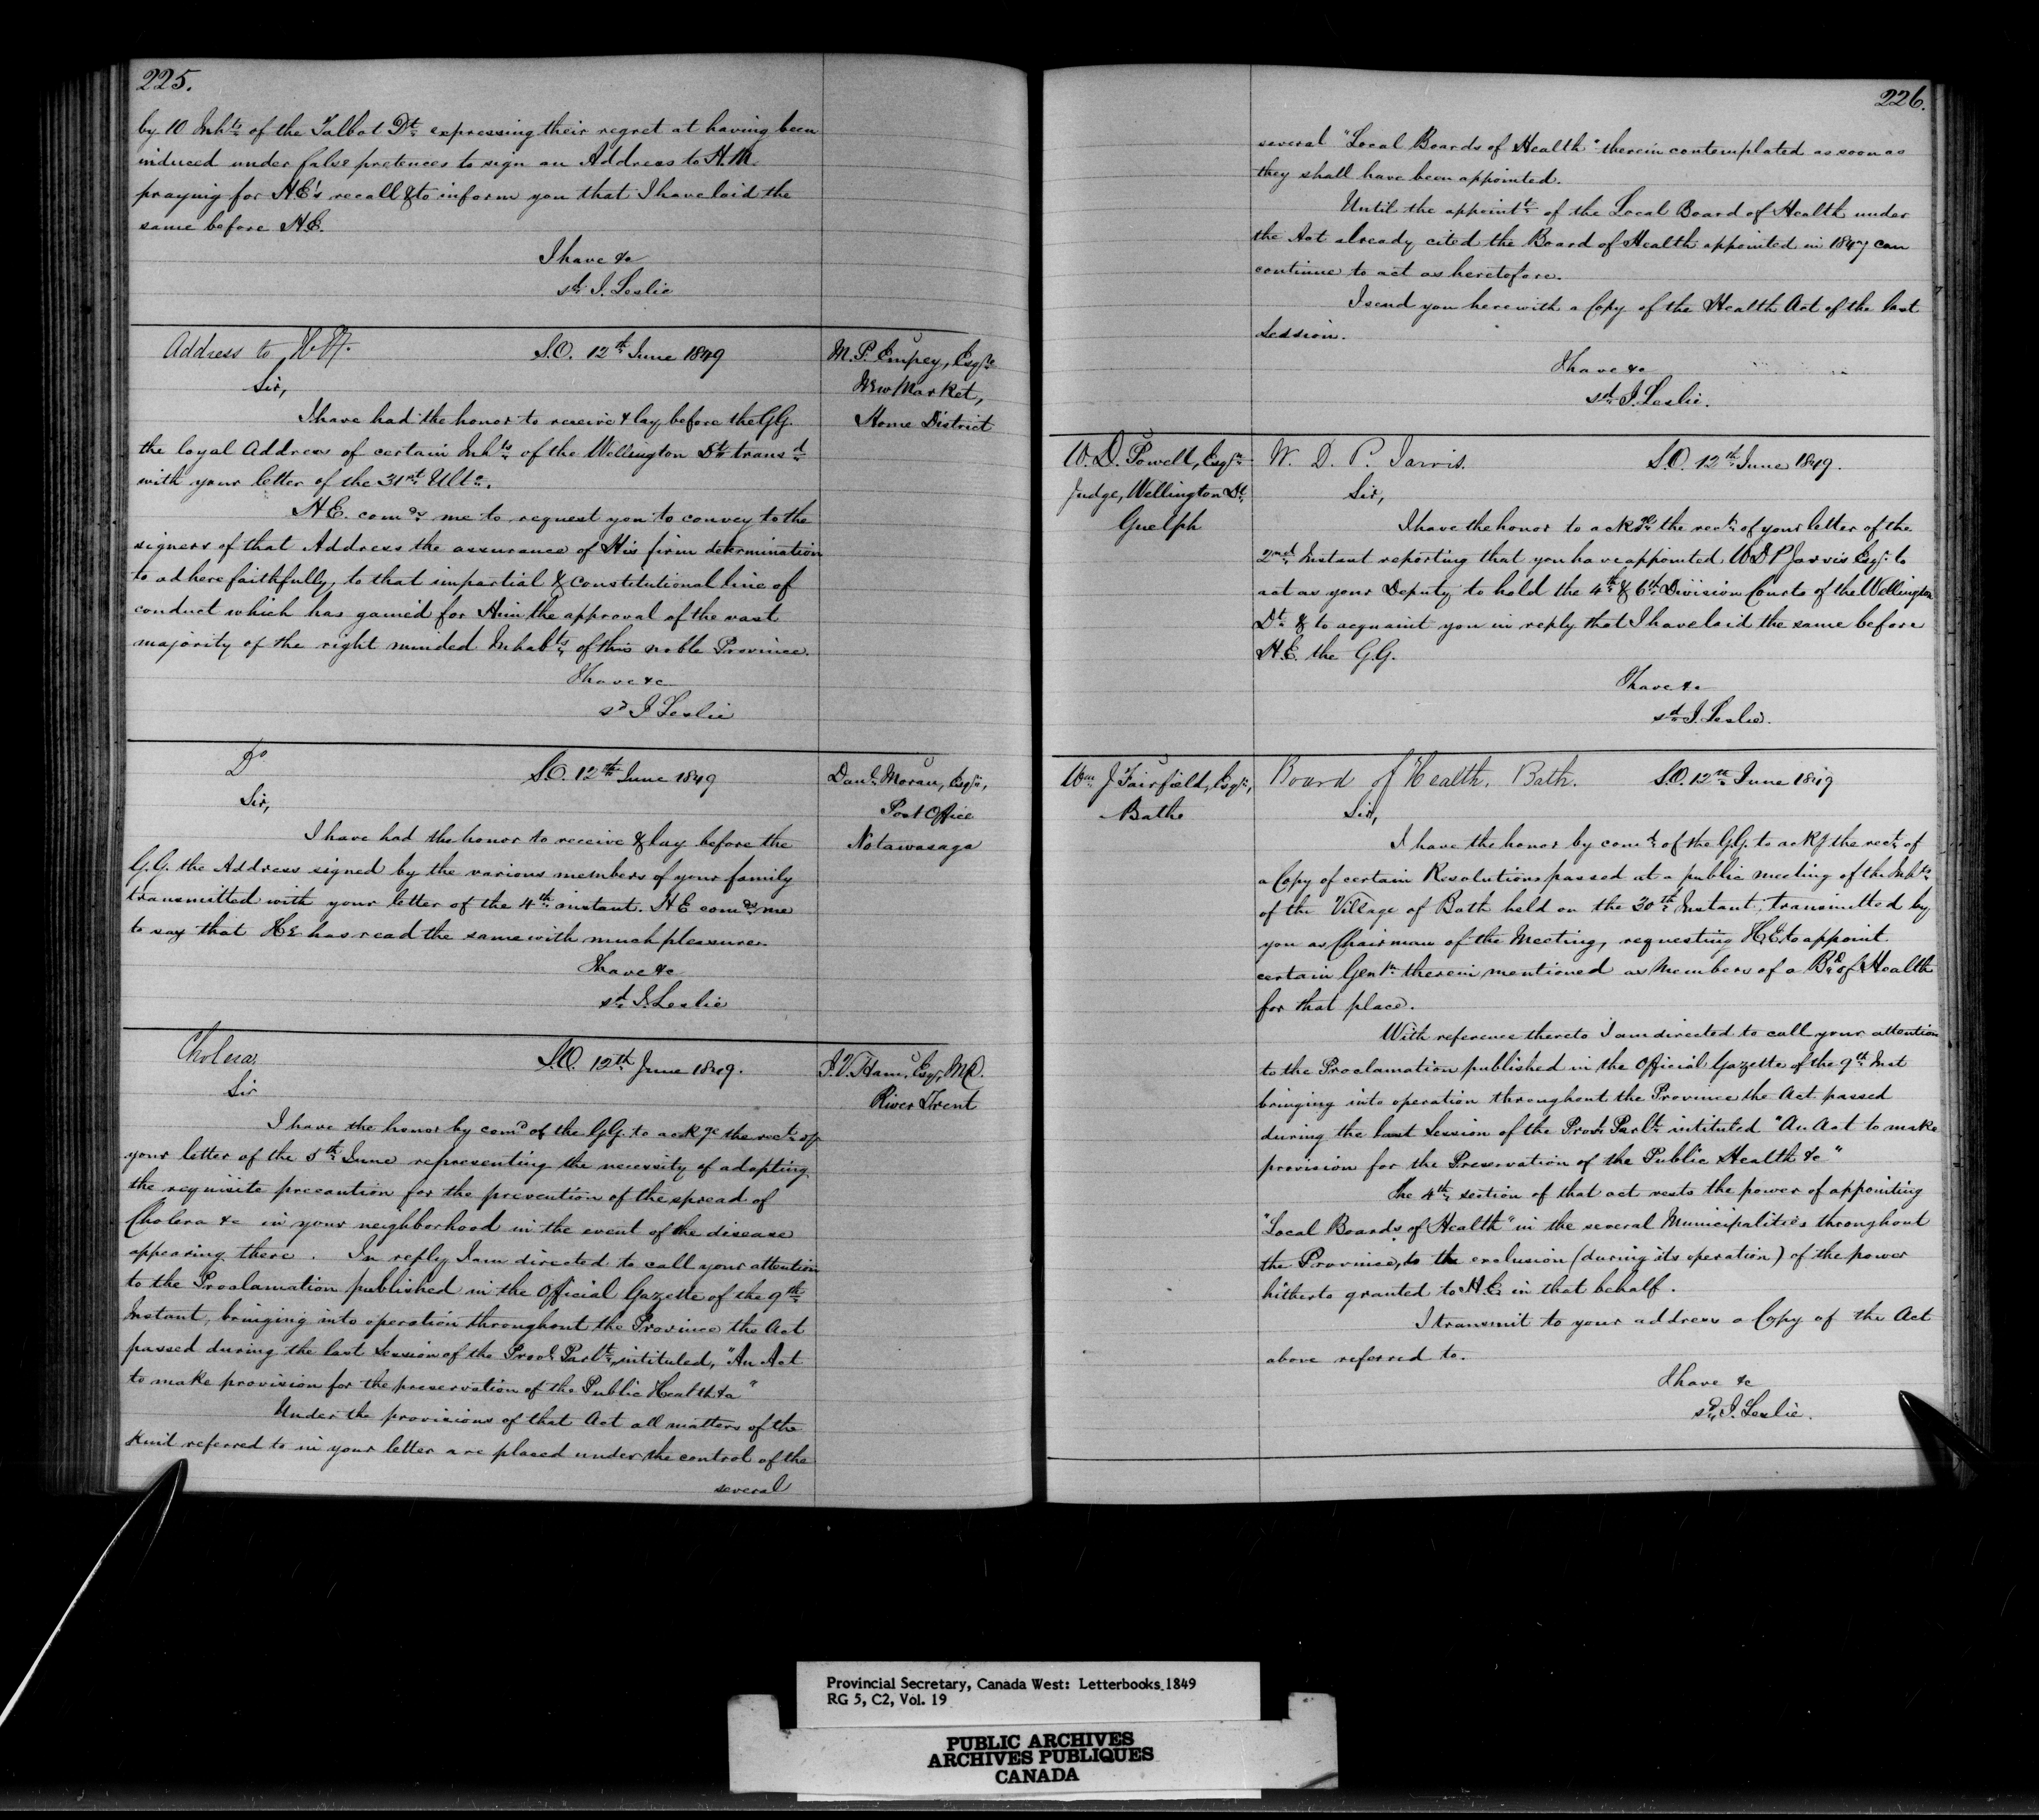 225.
by 10 Inhts of the Talbot Dt expressing their regret at having been
induced under false pretences to sign an Address to H.M.
praying for H.E's recall & to inform you that I have laid the
same before H.E.
I have &c
sd J. Leslie
Address to H.E.
S.O. 12th June 1849
M.P. Empey, Esqre
New Market,
Home District
Sir,
I have had the honor to receive & lay before the G.G.
the loyal Address of certain Inhts of the Wellington Dt transd
with your letter of the 31st Ulto.
H.E. comds me to request you to convey to the
signers of that Address the assurance of His firm determination
to adhere faithfully, to that impartial & constitutional line of
conduct which has gained for Him the approval of the vast
majority of the right minded Inhabts of this noble Province.
I have &c
sd J Leslie
Do
S.O. 12th June 1849
Danl Moran, Esqr,
Post Office
Notawasaga
Sir,
I have had the honor to receive & lay before the
G.G. the Address signed by the various members of your family
transmitted with your letter of the 4th instant. H.E comds me
to say that H.E has read the same with much pleasure.
I have &c
sd J. Leslie
Cholera
S.O. 12th June 1849.
J.V. Ham, Esqr, MD.
River Trent
Sir
I have the honor by comd of the G.G. to ackge the rect of
your letter of the 5th June representing the necessity of adopting
the requisite precaution for the prevention of the spread of
Cholera &c in your neighborhood in the event of the disease
appearing there. In reply I am directed to call your attention
to the Proclamation published in the Official Gazette of the 9th
Instant, bringing into operation throughout the Province the Act
passed during the last Session of the Provl Parlt, intituled, "An Act
to make provision for the preservation of the Public Health &c"
Under the provisions of that Act all matters of the
kind referred to in your letter are placed under the control of the
several
226.
several "Local Boards of Health" therein contemplated as soon as
they shall have been appointed.
Until the appointt of the Local Board of Health under
the Act already cited the Board of Health appointed in 1847 can
continue to act as heretofore.
I send you herewith a Copy of the Health Act of the last
Session.
I have &c
sd J. Leslie.
W.D. Powell, Esqre
Judge, Wellington Dt
Guelph
W. D. P. Jarvis.
S.O. 12th June 1849.
Sir,
I have the honor to ackge the rect of your letter of the
2nd Instant reporting that you have appointed W D P Jarvis Esqr to
act as your Deputy to hold the 4th & 6th Division Courts of the Wellington
Dt & to acquaint you in reply that I have laid the same before
H.E. the G.G.
I have &c
sd J. Leslie.
Wm J Fairfield, Esqr,
Bathe
Board of Health, Bath.
S.O. 12th June 1849
Sir,
I have the honor by comd of the G.G. to ackg the rect of
a Copy of certain Resolutions passed at a public meeting of the Inhts
of the Village of Bath held on the 30th Instant, transmitted by
you as Chairman of the Meeting, requesting H.E. to appoint
certain Gentn therein mentioned as Members of a Bd of Health
for that place.
With reference thereto I am directed to call your attention
to the Proclamation published in the Official Gazette of the 9th Inst
bringing into operation throughout the Province the Act passed
during the last Session of the Provl Parlt intituled "An Act to make
provision for the Preservation of the Public Health &c"
The 4th section of that act vests the power of appointing
"Local Boards of Health" in the several Municipalities throughout
the Province, to the exclusion (during its operation) of the power
hitherto granted to H.E. in that behalf.
I transmit to your address a Copy of the Act
above referred to.
I have &c
sd J. Leslie.
Provincial Secretary, Canada West: Letterbooks 1849
RG 5, C2, Vol. 19
PUBLIC ARCHIVES
ARCHIVES PUBLIQUES
CANADA